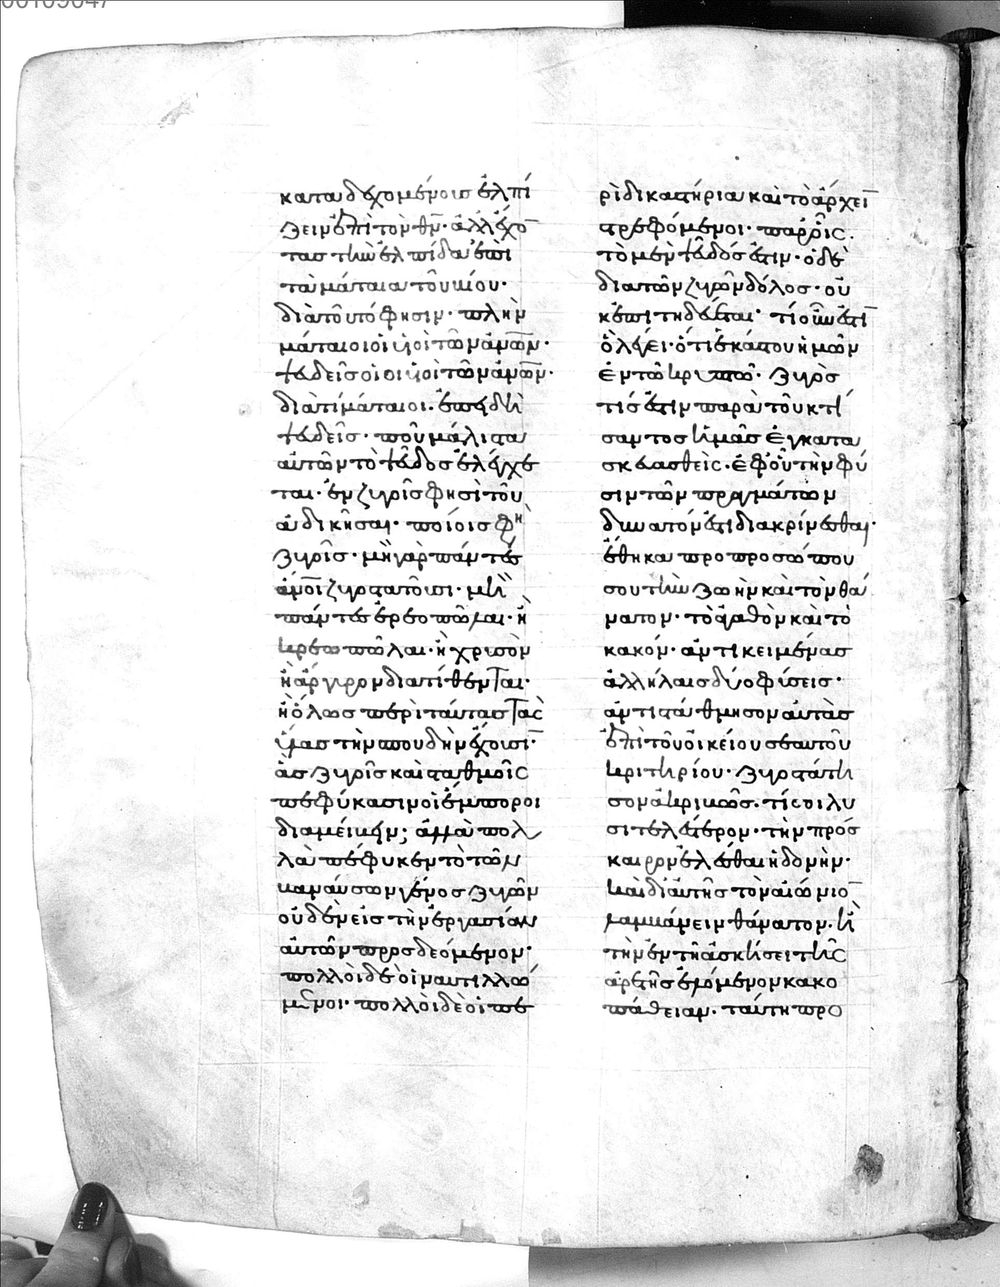 καταδεχομένοις ἐλπί
ζειν ἐπὶ τὸν θν̄· ἀλλ' ἔχο̄
τας τὴν ἐλπίδα ἐπὶ
τὰ μάταια τοῦ βίου·
διὰ τοῦτό φησιν· πλὴν
μάταιοι οἱ υἱοὶ τῶν ἀν̄ων̄·
ψευδεῖς οἱ υἱοὶ τῶν ἀν̄ων̄·
διὰ τί μάταιοι· ἐπειδὴ
ψευδεῖς· ποῦ μάλιστα
αὐτῶν τὸ ψεῦδος ἐλέγχε
ται· ἐν ζυγοῖς φησὶ τοῦ
ἀδικῆσαι· ποίοις φη
ζυγοῖς· μὴ γὰρ πάντες
ἀν̄οι ζυγοστατοῦσι· μὴ
πάντες ἐρεοπῶλαι· ἢ
κρεωπῶλαι· ἢ χρυσὸν
ἢ ἄργυρον διατίθενται·
ἢ ὅλως περὶ ταύτας τὰς
ὕλας τὴν σπουδὴν ἔχουσῑ·
ἃς ζυγοῖς καὶ σταθμοῖς
πεφύκασιν οἱ ἔμποροι
διαμείβειν; ἀλλὰ πολ
λὰ πέφυκεν τὸ τῶν
βαναύσων γένος ζυγῶν
οὐδὲν εἰς τὴν ἐργασίαν
αὐτῶν προσδεόμενον·
πολλοὶ δὲ οἱ ναυτιλλό
μενοι· πολλοὶ δὲ οἱ πε
ρὶ δικαστήρια καὶ τὸ ἄρχεῑ
στρεφόμενοι· παρ' οἷς
τὸ μὲν ψεῦδός ἐστιν· ὁ δὲ
διὰ τῶν ζυγῶν δόλος· οὐ
κ ἐπιτηδεύεται· τί οὖν ἐστῑ
ὃ λέγει· ὅτι ἑκάστου ἡμῶν
ἐν τῷ κρυπτῷ· ζυγὸς
τίς ἐστιν παρὰ τοῦ κτί
σαντος ἡμᾶς ἐγκατα
σκευασθείς· ἐφ' οὗ τὴν φύ
σιν τῶν πραγμάτων
δυνατόν ἐστι διακρίνεσθαι·
ἔθηκα πρὸ προσώπου
σου τὴν ζωὴν καὶ τὸν θά
νατον· τὸ ἀγαθὸν καὶ τὸ
κακόν· ἀντικειμένας
ἀλλήλαις δύο φύσεις·
ἀντιστάθμησον αὐτὰς
ἐπὶ τοῦ οἰκείου σεαυτοῦ
κριτηρίου· ζυγοστάτη
σον ἀκριβῶς· τί σοι λυ
σιτελέστερον· τὴν πρόσ
καιρον ἑλέσθαι ἡδονήν·
καὶ δι' αὐτῆς τὸν αἰώνιο̄
λαμβάνειν θάνατον· ἢ
τὴν ἐν τῇ ἀσκήσει τῆς
ἀρετῆς ἑλόμενον κακο
πάθειαν· ταύτῃ προ